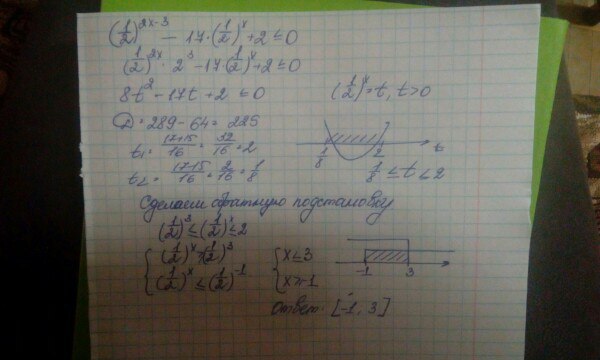 (1/2)^{2x-3} - 17·(1/2)^x + 2 ≤ 0
(1/2)^{2x} · 2^3 - 17·(1/2)^x + 2 ≤ 0
8t^2 - 17t + 2 ≤ 0
(1/2)^x = t, t > 0
D = 289 - 64 = 225
t1 = (17+15)/16 = 32/16 = 2
t2 = (17-15)/16 = 2/16 = 1/8
1/8 2 t
1/8 ≤ t ≤ 2
Сделаем обратную подстановку
(1/2)^3 ≤ (1/2)^x ≤ 2
{ (1/2)^x ≥ (1/2)^3
(1/2)^x ≤ (1/2)^{-1}
{ x ≤ 3
x ≥ -1
-1 3
Ответ. [-1; 3]